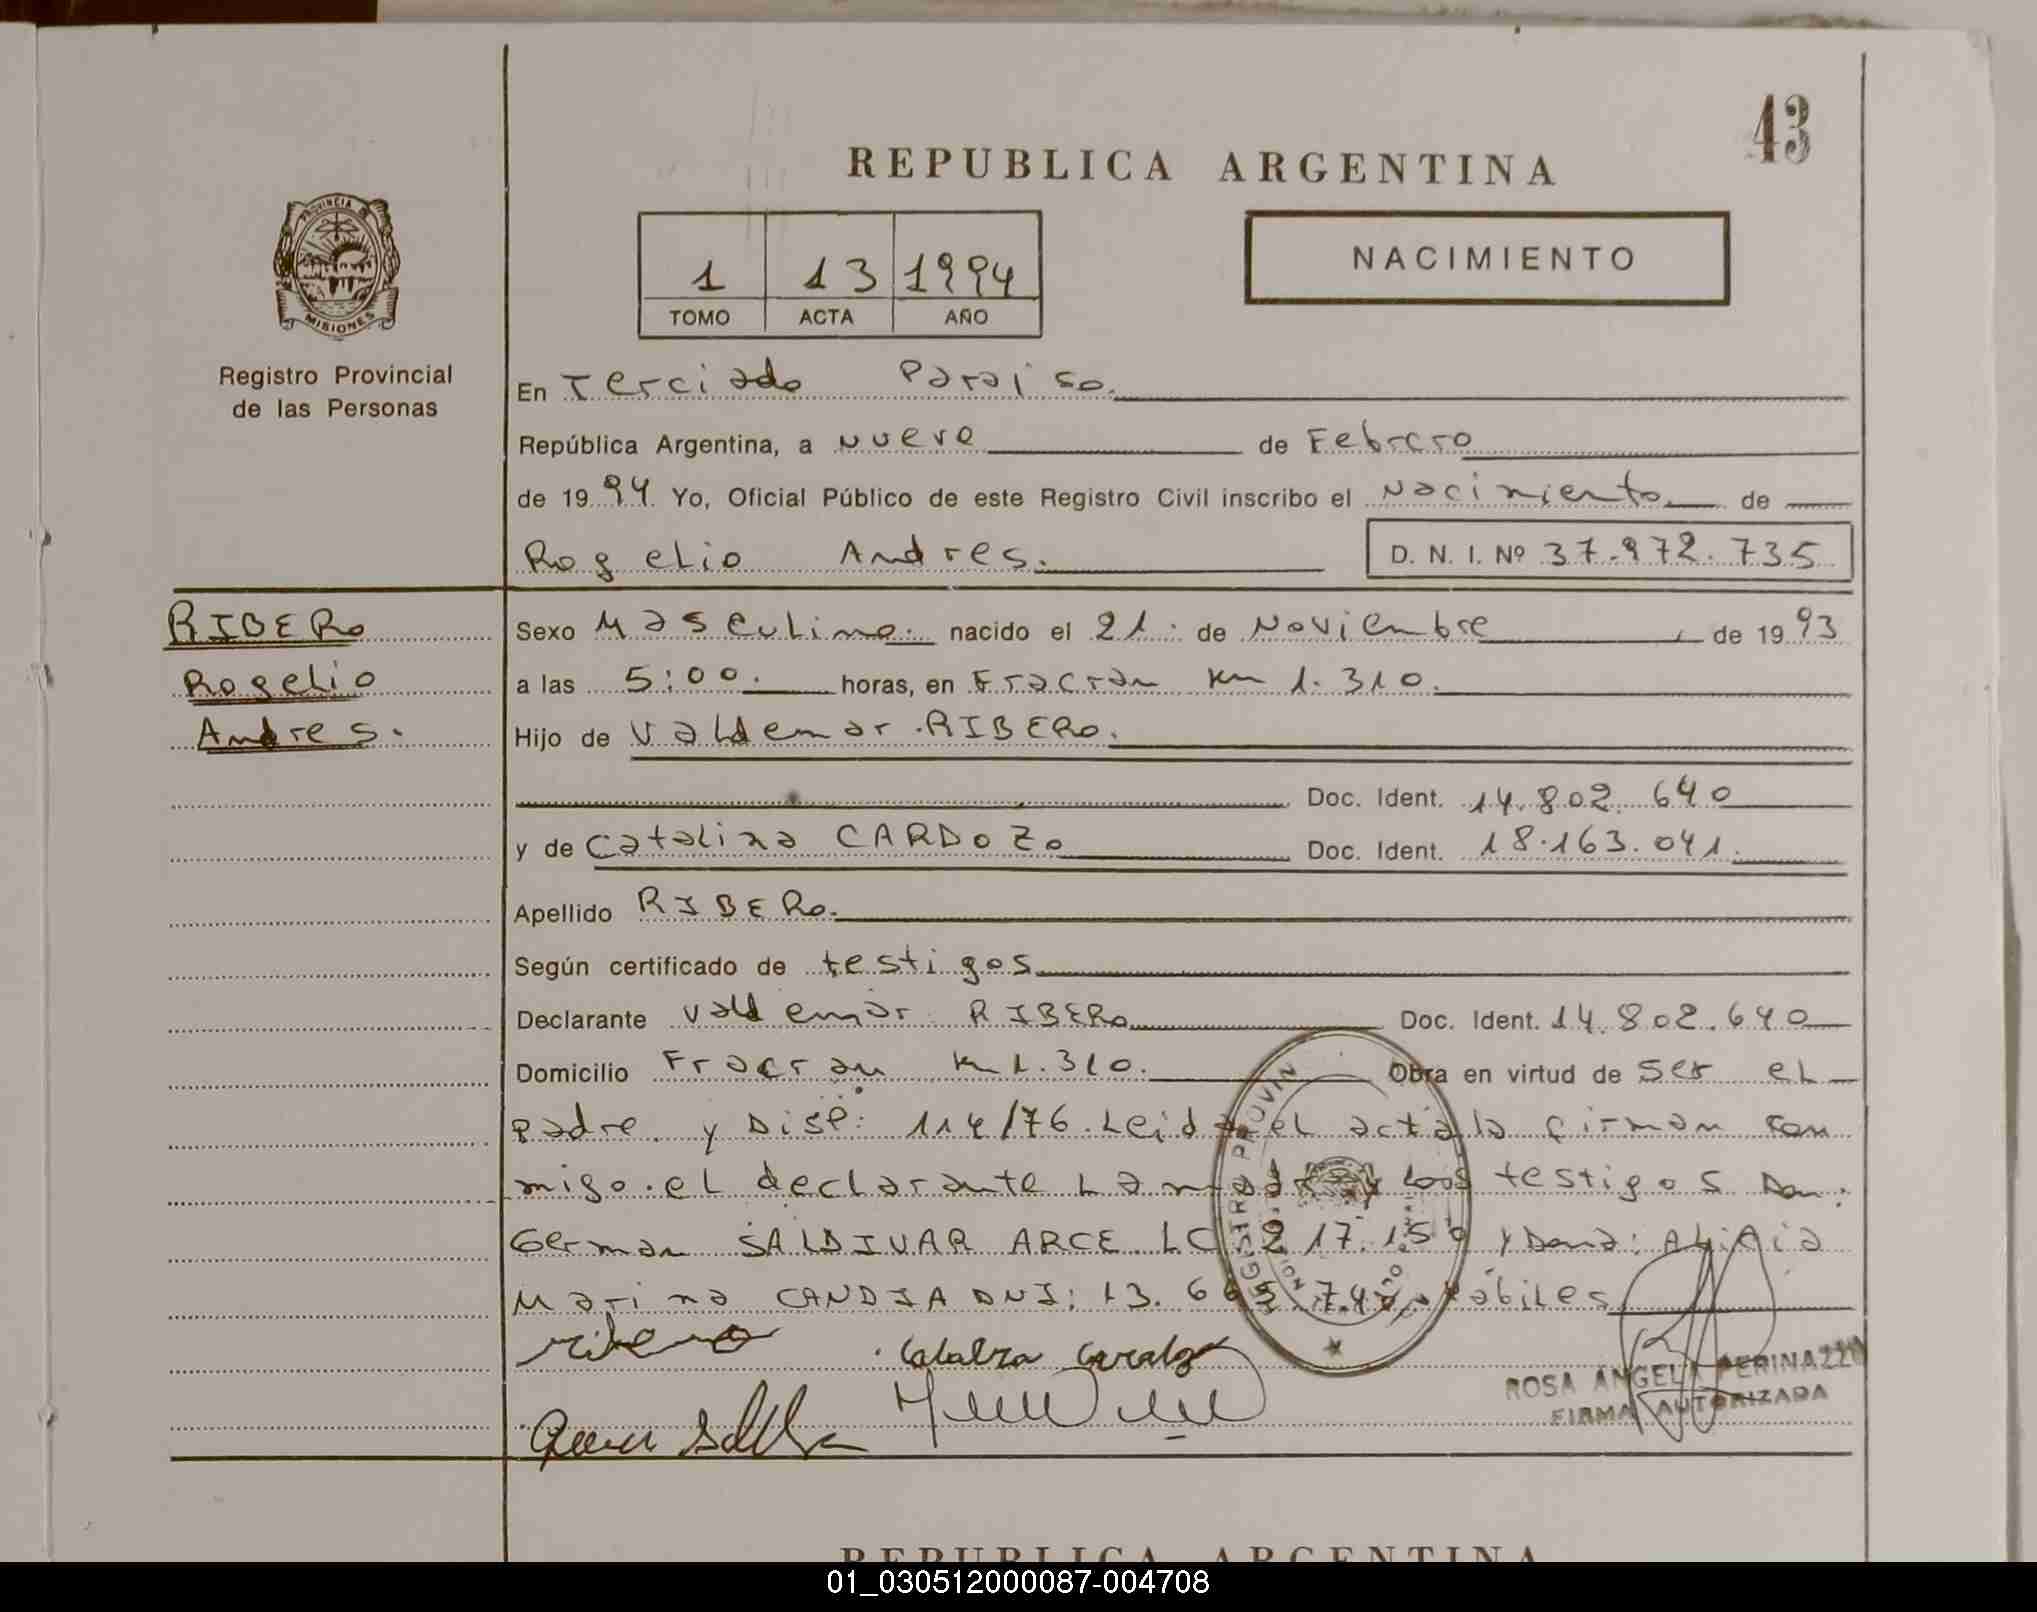 43
REPUBLICA ARGENTINA
PROVINCIA DE
MISIONES
1 13 1994
NACIMIENTO
TOMO ACTA AÑO
Registro Provincial
de las Personas
En Terciado Paraiso.
República Argentina, a nueve de Febrero
de 19 94. Yo, Oficial Público de este Registro Civil inscribo el Nacimiento de
Rogelio Andres. D. N. I. Nº 37.972.735
RIBERo
Rogelio
Andres.
Sexo Masculino. nacido el 21. de Noviembre de 19 93
a las 5:00. horas, en Fracran Km 1.310.
Hijo de Valdemar RIBERo.
Doc. Ident. 14.802.640
y de Catalina CARDoZo Doc. Ident. 18.163.041.
Apellido RIBERo.
Según certificado de testigos
Declarante Valdemar RIBERo Doc. Ident. 14.802.640
Domicilio Fracran Km 1.310. Obra en virtud de ser el
padre y Disp: 114/76. Leida el acta la firman con
migo. el declarante La madre y los testigos Don:
German SALDIVAR ARCE LC 217.150 y Dona: Alicia
Marina CANDIA DNI: 13. habiles
REGISTRO PROVIN
ROSA ANGELA PERINAZZO
FIRMA AUTORIZADA
REPUBLICA ARGENTINA
01_030512000087-004708